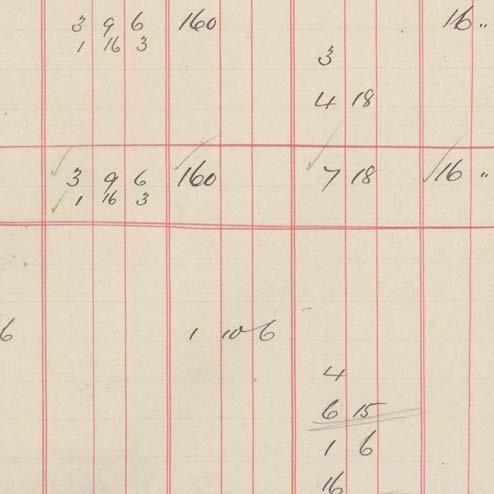 3 9 6 160 16 "
1 16 3
3
4 18
3 9 6 160 7 18 16 "
1 16 3
6 1 10 6
4
6 15
1 6
16